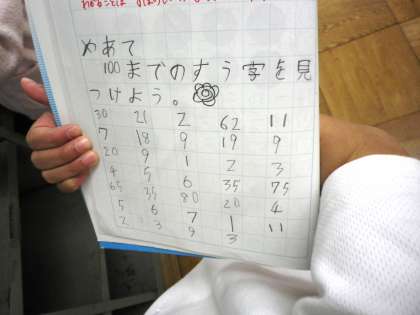 めあて
100までのすう字を見
つけよう。
30 21 2 62 11
7 18 9 19 9
20 9 1 2 3
4 5 6 35 75
65 35 80 20 4
5 6 7 1 11
2 3 9 3